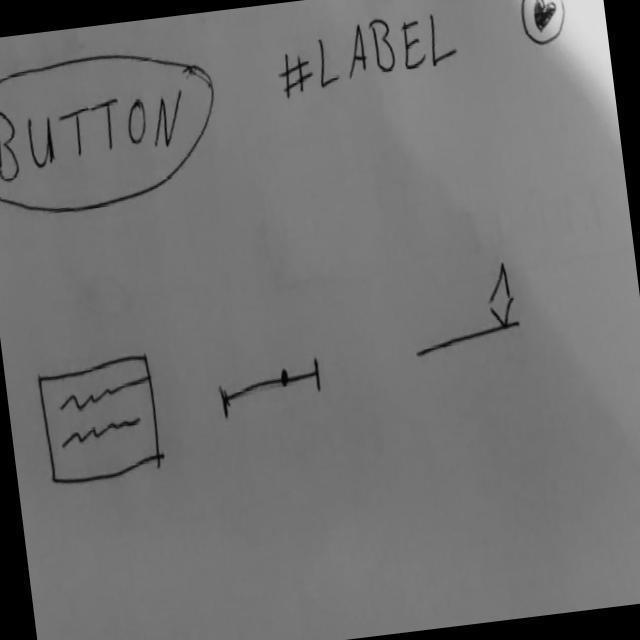 BUTTON
#LABEL